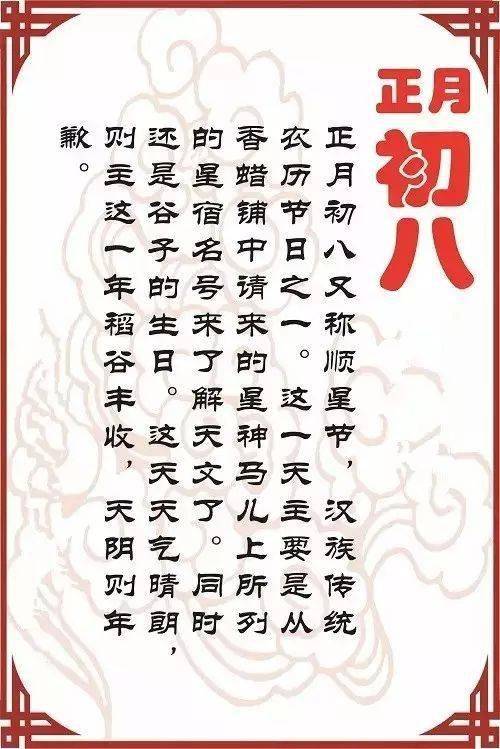 正月
初八
正月初八又称顺星节，汉族传统
农历节日之一。这一天主要是从
香蜡铺中请来的星神马儿上所列
的星宿名号来了解天文了。同时
还是谷子的生日。这天天气晴朗，
则主这一年稻谷丰收，天阴则年
歉。